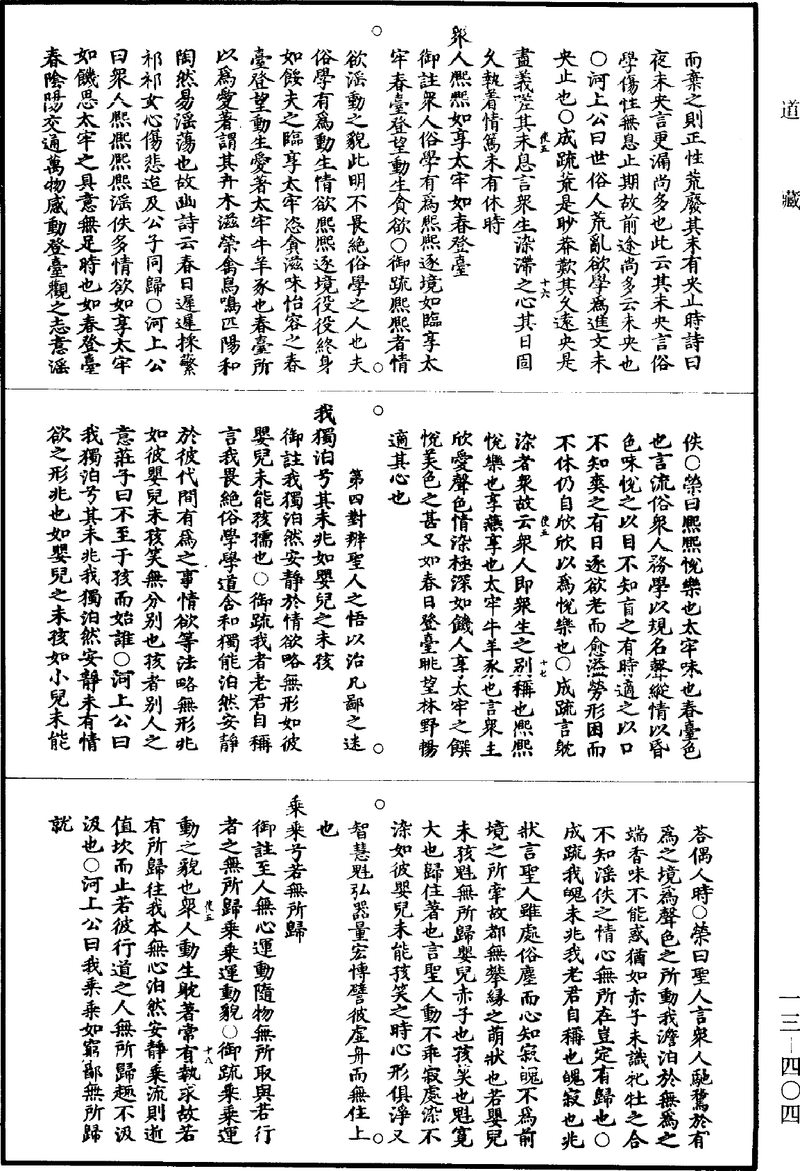 道藏
而棄之則正性荒廢其未有央止時詩曰
夜未央言更漏尚多也此云其未央言俗
學傷性無息止期故前途尚多云未央也
○河上公曰世俗人荒亂欲學為進文未
央止也○成疏荒是眇莽歎其久遠央是
盡義嗟其未息言衆生染滯之心其日固
久執着情篤未有休時
使五 十六
衆人熙熙如享太牢如春登臺
御註衆人俗學有為熙熙逐境如臨享太
牢春臺登望動生貪欲○御疏熙熙者情
欲淫動之貌此明不畏絕俗學之人也夫
俗學有為動生情欲熙熙逐境役役終身
如餒夫之臨享太牢恣貪滋味怡容之春
臺登望動生愛著太牢牛羊豕也春臺所
以為愛著謂其卉木滋榮禽鳥鳴匹陽和
陶然易淫蕩也故豳詩云春日遲遲採蘩
祁祁女心傷悲迨及公子同歸○河上公
曰衆人熙熙熙熙淫佚多情欲如享太牢
如饑思太牢之具意無足時也如春登臺
春陰陽交通萬物感動登臺觀之志意淫
佚○榮曰熙熙悅樂也太牢味也春臺色
也言流俗衆人務學以規名聲縱情以昏
色味悅之以目不知盲之有時適之以口
不知爽之有日逐欲老而愈溢勞形困而
不休仍自欣欣以為悅樂也○成疏言躭
染者衆故云衆人即衆生之別稱也熙熙
使五 十七
悅樂也享燕享也太牢牛羊豕也言衆生
欣愛聲色情染極深如饑人享太牢之饌
悅美色之甚又如春日登臺眺望林野暢
適其心也
第四對辨聖人之悟以治凡鄙之迷
我獨泊兮其未兆如嬰兒之未孩
御註我獨泊然安靜於情欲略無形如彼
嬰兒未能孩孺也○御疏我者老君自稱
言我畏絕俗學學道含和獨能泊然安靜
於彼代間有為之事情欲等法略無形兆
如彼嬰兒未孩笑無分別也孩者別人之
意莊子曰不至于孩而始誰○河上公曰
我獨泊兮其未兆我獨泊然安靜未有情
欲之形兆也如嬰兒之未孩如小兒未能
荅偶人時○榮曰聖人言衆人馳騖於有
為之境為聲色之所動我澹泊於無為之
端香味不能惑猶如赤子未識牝牡之合
不知淫佚之情心無所在豈定有歸也○
成疏我魄未兆我老君自稱也魄寂也兆
狀言聖人雖處俗塵而心知寂魄不為前
境之所牽故都無攀緣之萌狀也若嬰兒
未孩魁無所歸嬰兒赤子也孩笑也魁寬
大也歸住著也言聖人動不乖寂處染不
染如彼嬰兒未能孩笑之時心形俱淨又
智慧魁弘器量宏博譬彼虛舟而無住上
也
乘乘兮若無所歸
御註至人無心運動隨物無所取與若行
者之無所歸乘乘運動貌○御疏乘乘運
動之貌也衆人動生躭著常有執求故若
使五 十八
有所歸往我本無心泊然安靜乘流則逝
值坎而止若彼行道之人無所歸趣不汲
汲也○河上公曰我乘乘如窮鄙無所歸
就
一三—四〇四